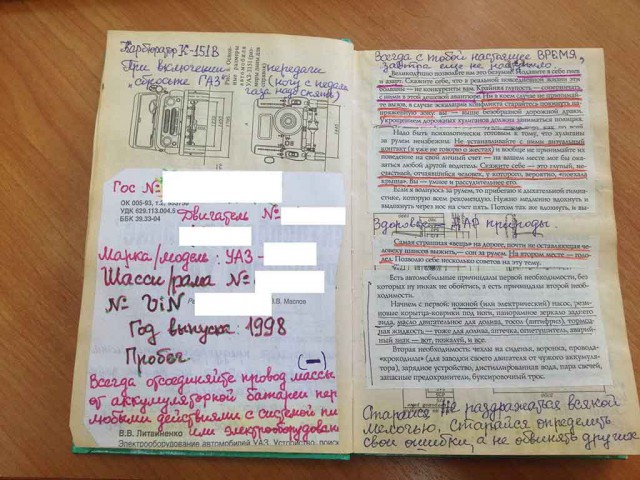 Карбюратор К-151В
При включении передачи
"сбросьте ГАЗ" (ногу с педали
газа надо снять)
Гос №
ОК 005-93,
УДК 629.113.004.5
ББК 39.33-04
Двигатель №
Марка/модель: УАЗ -
Шасси/рама №
№ ViN
В. Маслов
Год выпуска: 1998
Пробег.
(—)
Всегда отсоединяйте провод массы
от аккумуляторной батареи пер
любыми действиями с системой пи
или электрооборудован
В.В. Литвиненко
Электрооборудование автомобилей УАЗ. Устройство, поиск
Всегда с тобой настоящее ВРЕМЯ,
завтра еще не наступило.
Великодушно позвольте им это безумие. Подавите в себе гнев
и азарт. Скажите себе, что в реальной повседневной жизни эти
водилы — не конкуренты вам. Крайняя глупость — соперничать
с ними в этой дешевой атаковщине. Ни в коем случае не принимайте
те вызов, в случае эскалации конфликта старайтесь покинуть на-
пряженную зону: вы — выше безобразной дорожной драки.
Укрощением дорожных хулиганов должна заниматься полиция.
Надо быть психологически готовым к тому, что хулиганы
за рулем неизбежны. Не устанавливайте с ними визуальный
контакт (я уже не говорю о жестах) и вообще не принимайте их
поведение на свой личный счет — на вашем месте мог бы ока-
заться любой другой водитель. Скажите себе — это глупый, не-
счастный, отчаявшийся человек, у которого, вероятно, «поехала
крыша». Вы — умнее и рассудительнее его.
Если я волнуюсь за рулем, то прибегаю к дыхательной гимна-
стике, которую всем рекомендую. Нужно медленно вдохнуть и
выдохнуть через нос на счет пять. Потом так же вдохнуть, и вы-
Здоровье - ДАР природы.
Самая страшная «вещь» на дороге, почти не оставляющая че-
ловеку шансов выжить,— сон за рулем. На втором месте — голо-
лед. Позволю себе несколько советов на эту тему.
Есть автомобильные принадлежности первой необходимости, без
которых ну никак не обойтись, а есть причиндалы второй необхо-
димости.
Начнем с первой: ножной (или электрический) насос, рези-
новые корытца-коврики под ноги, панорамное зеркало заднего
вида, масло двигательное для долива, тосол (антифриз), тормоз-
ная жидкость — тоже для долива, аптечка, огнетушитель, аварий-
ный знак — вот, пожалуй, и все.
Вторая необходимость: чехлы на сиденья, воронка, провода-
«крокодилы» (для заводки своего двигателя от чужого аккумуля-
тора), зарядное устройство, дистиллированная вода, пара свечей,
запасные предохранители, буксировочный трос.
Старайся Не раздражаться всякой
мелочью, Старайся определить
свои ошибки, а не обвинять других.